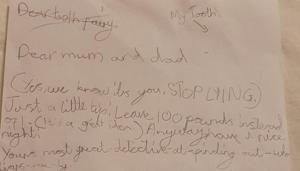 Dear tooth fairy,
My Tooth!
Dear mum and dad
(Yes, we know it's you, STOP LYING.)
Just a little tip, Leave 100 pounds instead
of 1 (It's a great idea) Anyway have a nice
night!
Yours most great detective-at-finding out-who